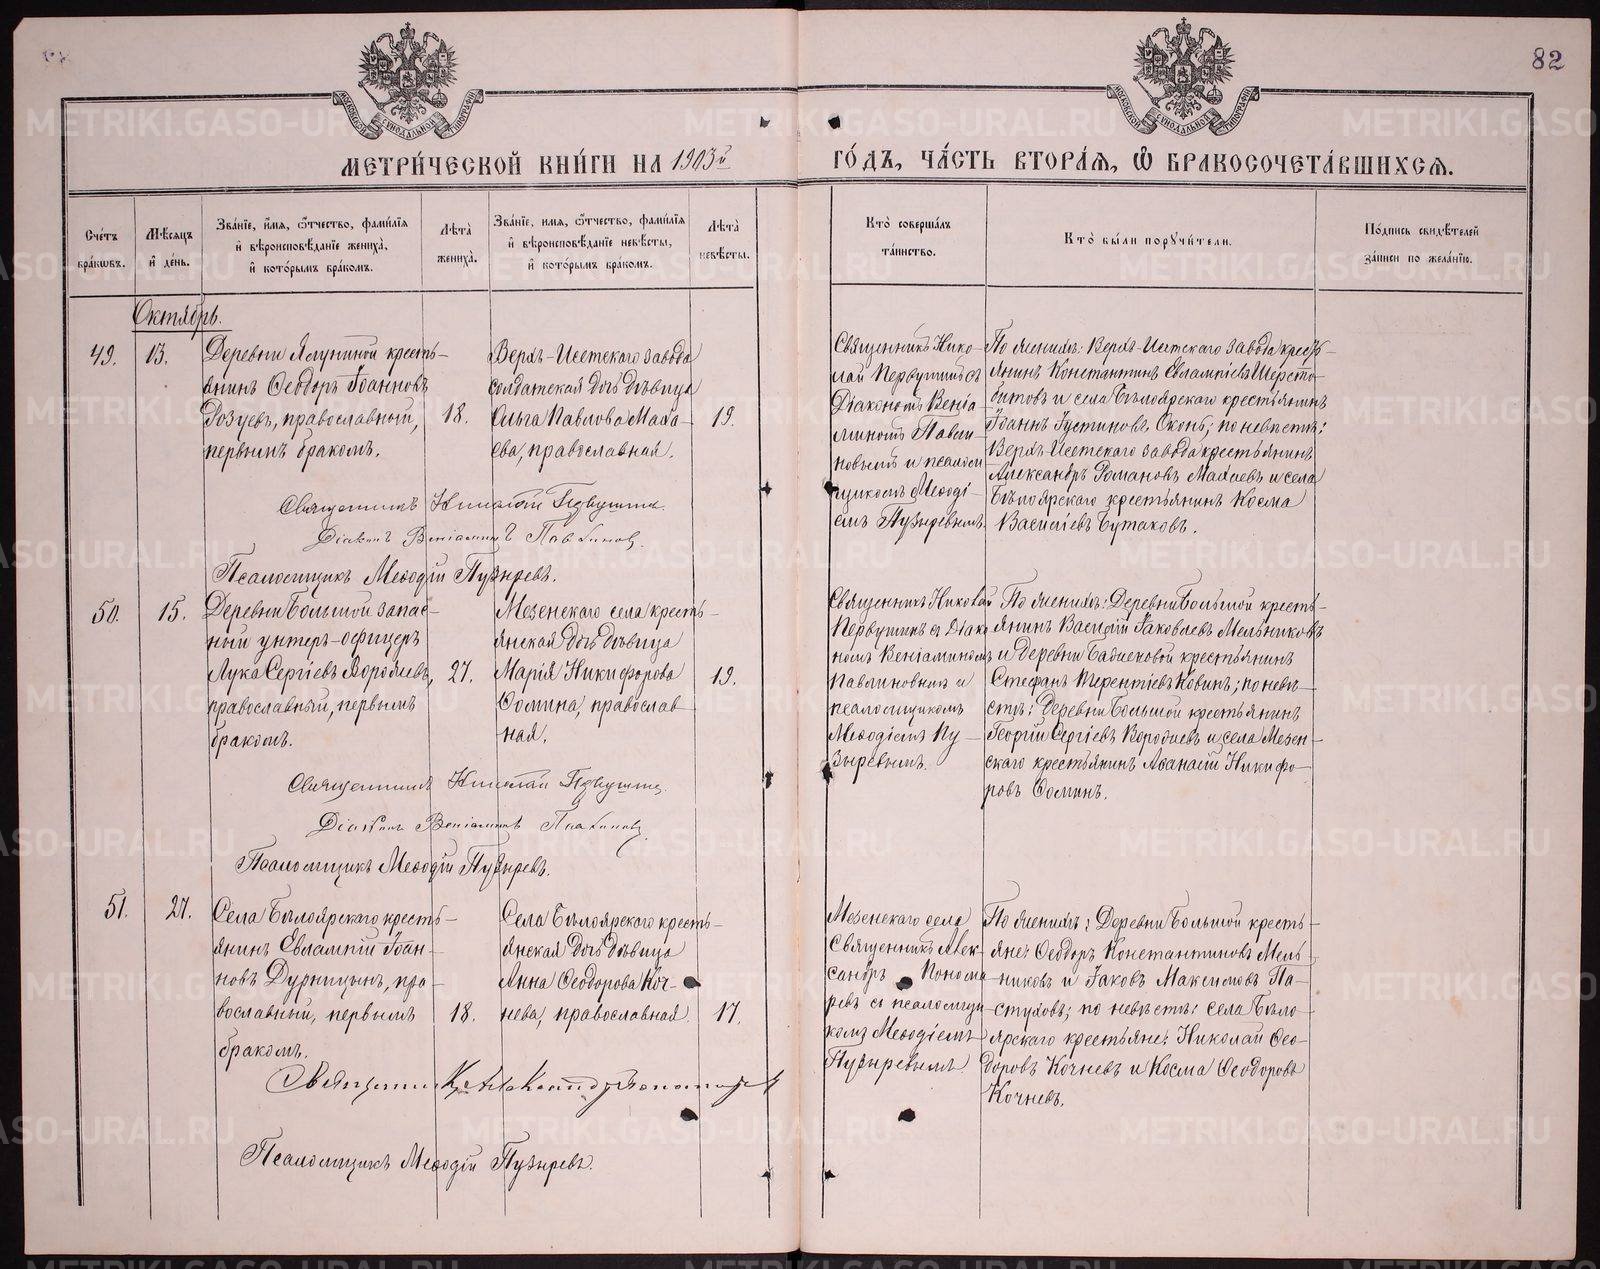 82
МЕТРИ́ЧЕСКОЙ КНИ́ГИ НА 1903й ГО́ДЪ, ЧА́СТЬ ВТОРА́Ѧ, Ѽ БРАКОСОЧЕТА́ВШИХСѦ.
Сче́тъ бра́кѡвъ.
Мѣ́сѧцъ и҆ де́нь.
Зва́нїе, и҆́мѧ, ѻ҆́тчество, фами́лїѧ и҆ вѣроисповѣ́данїе жениха̀, и҆ кото́рымъ бра́комъ.
Лѣ́та жениха̀.
Зва́нїе, имѧ, ѻ҆́тчество, фами́лїѧ и҆ вѣроисповѣ́данїе невѣ́сты, и҆ кото́рымъ бра́комъ.
Лѣ́та невѣ́сты.
Кто̀ соверша́лъ та́инство.
Кто̀ бы́ли порꙋчи́тели.
По́дпись свидѣ́телей за́писи по жела́нїю.
Октябрь.
49.
13.
Деревни Ялуниной кресть-
янинъ Ѳеодоръ Іоанновъ
Розуевъ, православный,
первымъ бракомъ.
18.
Верхъ-Исетскаго завода
солдатская дочь дѣвица
Ольга Павлова Мала-
ева, православная.
19.
Священникъ Нико-
лай Первушинъ съ
Діакономъ Веніа-
миномъ Павли-
новымъ и псалом-
щикомъ Меѳоді-
емъ Пузыревымъ.
По женихѣ: Верхъ-Исетскаго завода кресть-
янинъ Константинъ Евлампіевъ Шерсто-
битовъ и села Бѣлоярскаго крестьянинъ
Іоаннъ Іустиновъ; по невѣстѣ:
Верхъ-Исетскаго завода крестьянинъ
Александръ Романовъ Малаевъ и села
Бѣлоярскаго крестьянинъ Косма
Василіевъ Бутаковъ.
Священникъ Николай Первушинъ.
Діаконъ Веніаминъ Павлиновъ.
Псаломщикъ Меѳодій Пузыревъ.
50.
15.
Деревни Большой запас-
ный унтеръ-офицеръ
Лука Сергіевъ Воробьевъ,
православный, первымъ
бракомъ.
27.
Мезенскаго села кресть-
янская дочь дѣвица
Марія Никифорова
Ѳомина, православ-
ная.
19.
Священникъ Николай
Первушинъ съ Діако-
номъ Веніаминомъ
Павлиновымъ и
псаломщикомъ
Меѳодіемъ Пу-
зыревымъ.
По женихѣ: Деревни Большой кресть-
янинъ Василій Іаковлевъ Мельниковъ
и Деревни крестьянинъ
Стефанъ Терентіевъ Ковинъ; по невѣ-
стѣ: Деревни Большой крестьянинъ
Георгій Сергіевъ Воробьевъ и села Мезен-
скаго крестьянинъ Аѳанасій Никифо-
ровъ Ѳоминъ.
Священникъ Николай Первушинъ
Діаконъ Веніаминъ Павлиновъ
Псаломщикъ Меѳодій Пузыревъ.
51.
27.
Села Бѣлоярскаго кресть-
янинъ Евлампій Іоан-
новъ Дурницынъ, пра-
вославный, первымъ
бракомъ.
18.
Села Бѣлоярскаго кресть-
янская дочь дѣвица
Анна Ѳеодорова Коч-
нева, православная.
17.
Мезенскаго села
Священникъ Алек-
сандръ Понома-
ревъ съ псаломщи-
комъ Меѳодіемъ
Пузыревымъ
По женихѣ: Деревни Большой кресть-
яне: Ѳеодоръ Константиновъ Мель-
никовъ и Іаковъ Максимовъ Па-
стуховъ; по невѣстѣ: села Бѣло-
ярскаго крестьяне: Николай Ѳео-
доровъ Кочневъ и Косма Ѳеодоровъ
Кочневъ.
Священникъ Александръ Пономаревъ
Псаломщикъ Меѳодій Пузыревъ.
METRIKI.GASO-URAL.RU